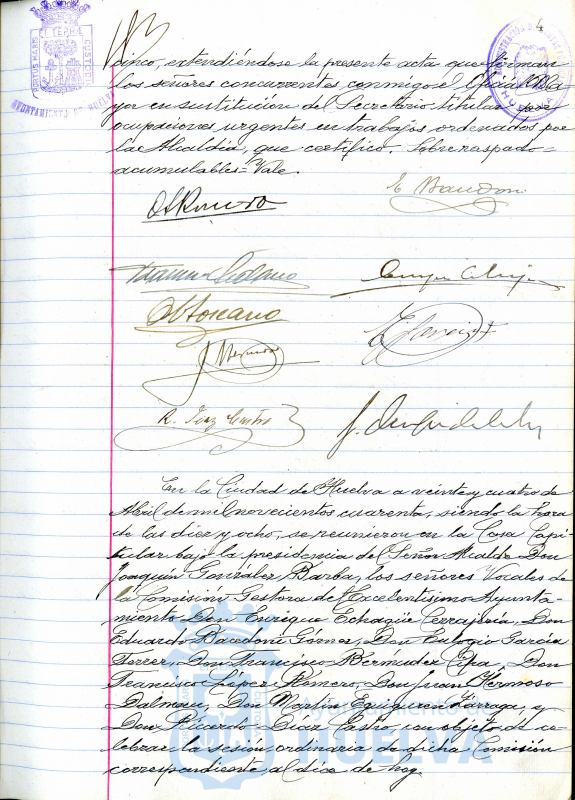 4
PORTUS MARIS ET TERRÆ CUSTODIA
AYUNTAMIENTO DE HUELVA
cinco, extendiéndose la presente acta que firman
los señores concurrentes conmigo el Oficial Ma
yor en sustitución del Secretario titular por
ocupaciones urgentes en trabajos ordenados por
la Alcaldía, que certifico. Sobreraspado=
acumulables=Vale.
R. Díaz Castro
En la Ciudad de Huelva a veinte y cuatro de
Abril de mil novecientos cuarenta, siendo la hora
de las diez y ocho, se reunieron en la Casa Capi-
tular bajo la presidencia del Señor Alcalde Don
Joaquín González Barba, los señores Vocales de
la Comisión Gestora del Excelentísimo Ayunta-
miento, Don Enrique Echagüe Cerrajería, Don
Eduardo Bacedoni Gómez, Don Eulogio García
Ferrer, Don Francisco Bermudez Cpa, Don
Francisco López Romero, Don Juan Hermoso
Dalmau, Don Martín Eguiguren Lizarraga, y
Don Ricardo Díaz Castro con objeto de ce-
lebrar la sesión ordinaria de dicha Comisión
correspondiente al día de hoy
Ayuntamiento
HUELVA